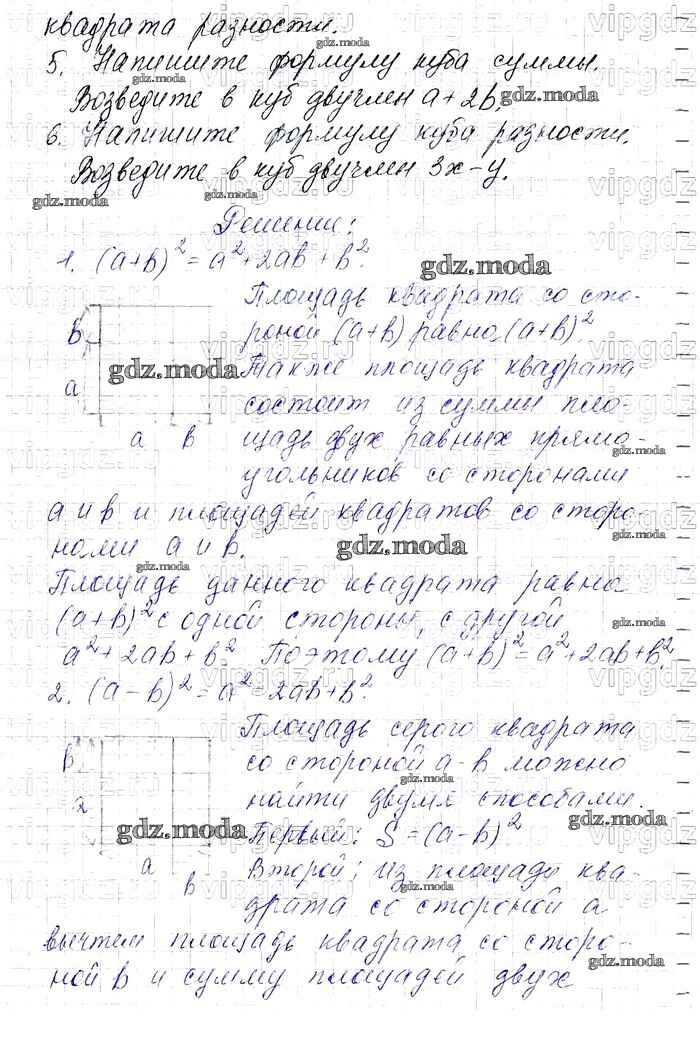 квадрата разности.
5. Напишите формулу куба суммы.
Возведите в куб двучлен a+2b.
6. Напишите формулу куба разности.
Возведите в куб двучлен 3x-y.
Решение:
1. (a+b)² = a²+2ab+b².
Площадь квадрата со сто-
роной (a+b) равна (a+b)².
Также площадь квадрата
состоит из суммы пло-
щадь двух равных прямо-
угольников со сторонами
a и b и площадей квадратов со сторо-
нами a и b.
b
a
a b
Площадь данного квадрата равна
(a+b)² с одной стороны, с другой
a²+2ab+b². Поэтому (a+b)²=a²+2ab+b².
2. (a-b)² = a²-2ab+b².
Площадь серого квадрата
со стороной a-b можно
найти двумя способами.
Первый: S=(a-b)²
Второй: из площади ква-
драта со стороной a
b
a
a
b
вычтем площадь квадрата со сторо-
ной b и сумму площадей двух
gdz.moda
vipgdz.ru